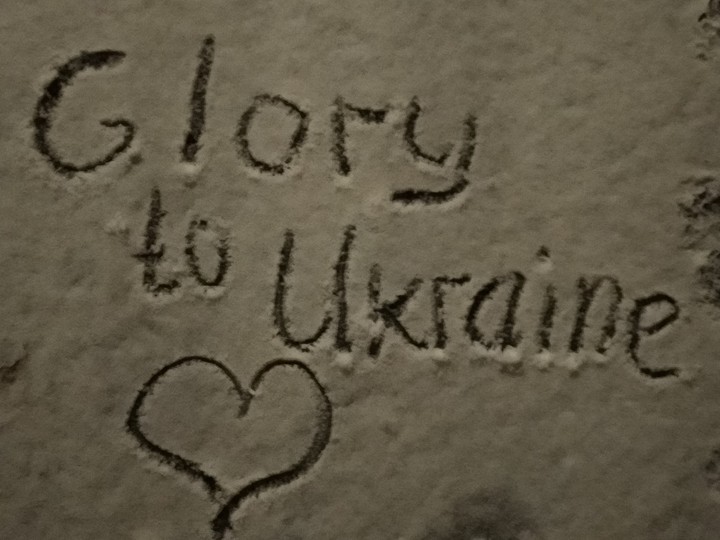 Glory
to Ukraine